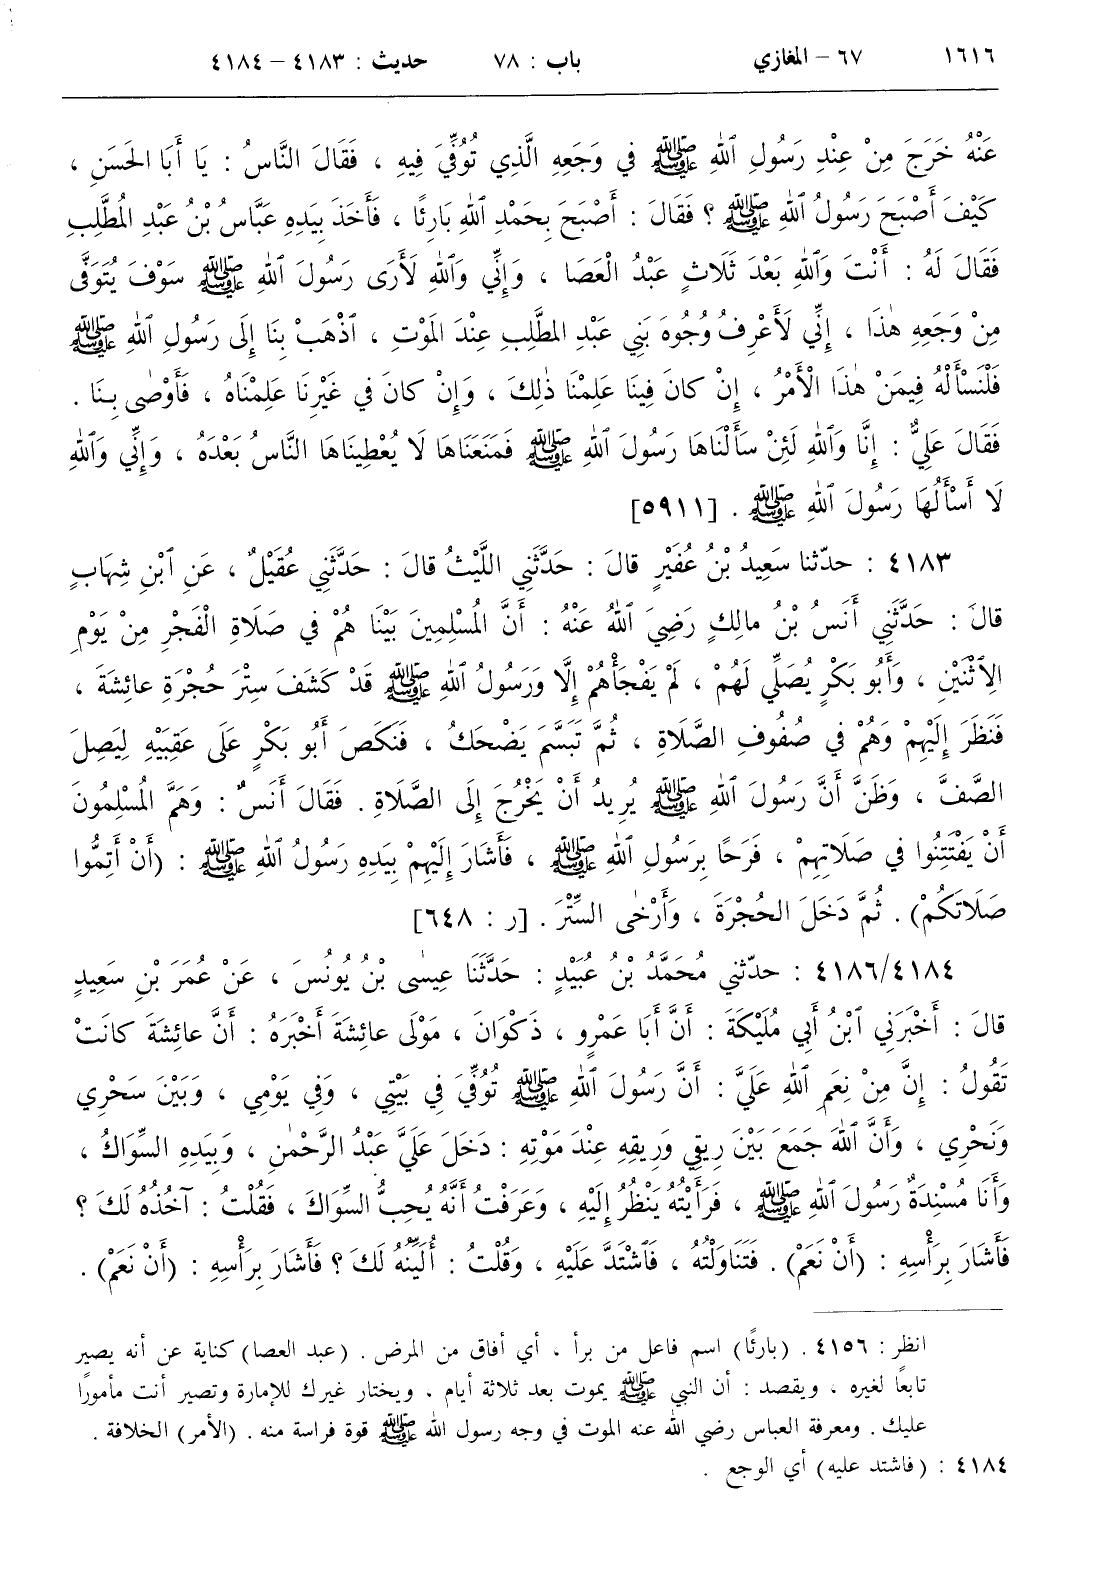 ١٦١٦ ٦٧ – المغازي باب : ٧٨ حديث : ٤١٨٣ – ٤١٨٤
عَنْهُ خَرَجَ مِنْ عِنْدِ رَسُولِ ٱللهِ ﷺ في وَجَعِهِ الَّذِي تُوُفِّيَ فِيهِ ، فَقَالَ النَّاسُ : يَا أَبَا الحَسَنِ ،
كَيْفَ أَصْبَحَ رَسُولُ ٱللهِ ﷺ ؟ فَقَالَ : أَصْبَحَ بِحَمْدِ ٱللهِ بَارِئًا ، فَأَخَذَ بِيَدِهِ عَبَّاسُ بْنُ عَبْدِ المُطَّلِبِ
فَقَالَ لَهُ : أَنْتَ وَٱللهِ بَعْدَ ثَلَاثٍ عَبْدُ الْعَصَا ، وَإِنِّي وَٱللهِ لَأَرَى رَسُولَ ٱللهِ ﷺ سَوْفَ يُتَوَفَّى
مِنْ وَجَعِهِ هٰذَا ، إِنِّي لَأَعْرِفُ وُجُوهَ بَنِي عَبْدِ المطَّلِبِ عِنْدَ المَوْتِ ، ٱذْهَبْ بِنَا إِلَى رَسُولِ ٱللهِ ﷺ
فَلْنَسْأَلْهُ فِيمَنْ هٰذَا الْأَمْرُ ، إِنْ كانَ فِينَا عَلِمْنَا ذٰلِكَ ، وَإِنْ كانَ في غَيْرِنَا عَلِمْنَاهُ ، فَأَوْصٰى بِنَا .
فَقَالَ عَلِيٌّ : إِنَّا وَٱللهِ لَئِنْ سَأَلْنَاهَا رَسُولَ ٱللهِ ﷺ فَمَنَعَنَاهَا لَا يُعْطِينَاهَا النَّاسُ بَعْدَهُ ، وَإِنِّي وَٱللهِ
لَا أَسْأَلُهَا رَسُولَ ٱللهِ ﷺ . [٥٩١١]
٤١٨٣ : حدّثنا سَعِيدُ بْنُ عُفَيْرٍ قالَ : حَدَّثَنِي اللَّيْثُ قالَ : حَدَّثَنِي عُقَيْلٌ ، عَنِ ٱبْنِ شِهَابٍ
قالَ : حَدَّثَنِي أَنَسُ بْنُ مالِكٍ رَضِيَ ٱللهُ عَنْهُ : أَنَّ المُسْلِمِينَ بَيْنَا هُمْ في صَلَاةِ الْفَجْرِ مِنْ يَوْمِ
الِٱثْنَيْنِ ، وَأَبُو بَكْرٍ يُصَلِّي لَهُمْ ، لَمْ يَفْجَأْهُمْ إِلَّا وَرَسُولُ ٱللهِ ﷺ قَدْ كَشَفَ سِتْرَ حُجْرَةِ عائِشَةَ ،
فَنَظَرَ إِلَيْهِمْ وَهُمْ في صُفُوفِ الصَّلَاةِ ، ثُمَّ تَبَسَّمَ يَضْحَكُ ، فَنَكَصَ أَبُو بَكْرٍ عَلَى عَقِبَيْهِ لِيَصِلَ
الصَّفَّ ، وَظَنَّ أَنَّ رَسُولَ ٱللهِ ﷺ يُرِيدُ أَنْ يَخْرُجَ إِلَى الصَّلَاةِ . فَقَالَ أَنَسٌ : وَهَمَّ المُسْلِمُونَ
أَنْ يَفْتَتِنُوا في صَلَاتِهِمْ ، فَرَحًا بِرَسُولِ ٱللهِ ﷺ ، فَأَشَارَ إِلَيْهِمْ بِيَدِهِ رَسُولُ ٱللهِ ﷺ : (أَنْ أَتِمُّوا
صَلَاتَكُمْ) . ثُمَّ دَخَلَ الحُجْرَةَ ، وَأَرْخٰى السِّتْرَ . [ر : ٦٤٨]
٤١٨٦/٤١٨٤ : حدّثني مُحَمَّدُ بْنُ عُبَيْدٍ : حَدَّثَنَا عِيسٰى بْنُ يُونُسَ ، عَنْ عُمَرَ بْنِ سَعِيدٍ
قالَ : أَخْبَرَنِي ٱبْنُ أَبِي مُلَيْكَةَ : أَنَّ أَبَا عَمْرٍو ، ذَكْوَانَ ، مَوْلَى عائِشَةَ أَخْبَرَهُ : أَنَّ عائِشَةَ كانَتْ
تَقُولُ : إِنَّ مِنْ نِعَمِ ٱللهِ عَلَيَّ : أَنَّ رَسُولَ ٱللهِ ﷺ تُوُفِّيَ فِي بَيْتِي ، وَفِي يَوْمِي ، وَبَيْنَ سَحْرِي
وَنَحْرِي ، وَأَنَّ ٱللهَ جَمَعَ بَيْنَ رِيقِي وَرِيقِهِ عِنْدَ مَوْتِهِ : دَخَلَ عَلَيَّ عَبْدُ الرَّحْمٰنِ ، وَبِيَدِهِ السِّوَاكُ ،
وَأَنَا مُسْنِدَةٌ رَسُولَ ٱللهِ ﷺ ، فَرَأَيْتُهُ يَنْظُرُ إِلَيْهِ ، وَعَرَفْتُ أَنَّهُ يُحِبُّ السِّوَاكَ ، فَقُلْتُ : آخُذُهُ لَكَ ؟
فَأَشَارَ بِرَأْسِهِ : (أَنْ نَعَمْ) . فَتَنَاوَلْتُهُ ، فَٱشْتَدَّ عَلَيْهِ ، وَقُلْتُ : أُلَيِّنُهُ لَكَ ؟ فَأَشَارَ بِرَأْسِهِ : (أَنْ نَعَمْ) .
انظر : ٤١٥٦ . (بارئًا) اسم فاعل من برأ ، أي أفاق من المرض . (عبد العصا) كناية عن أنه يصير
تابعًا لغيره ، ويقصد : أن النبي ﷺ يموت بعد ثلاثة أيام ، ويختار غيرك للإمارة وتصير أنت مأمورًا
عليك . ومعرفة العباس رضي الله عنه الموت في وجه رسول الله ﷺ قوة فراسة منه . (الأمر) الخلافة .
٤١٨٤ : (فاشتد عليه) أي الوجع .